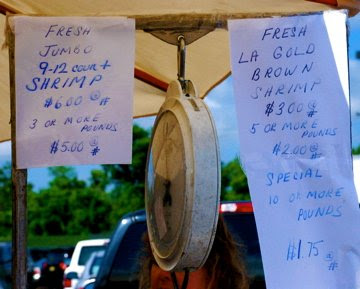 FRESH
JUMBO
9-12 COUNT
SHRIMP
$6.00 @ #
3 OR MORE
POUNDS
$5.00 @ #
FRESH
LA GOLD
BROWN
SHRIMP
$3.00 @ #
5 OR MORE POUNDS
$2.00 @ #
SPECIAL
10 OR MORE
POUNDS
$1.75 @ #